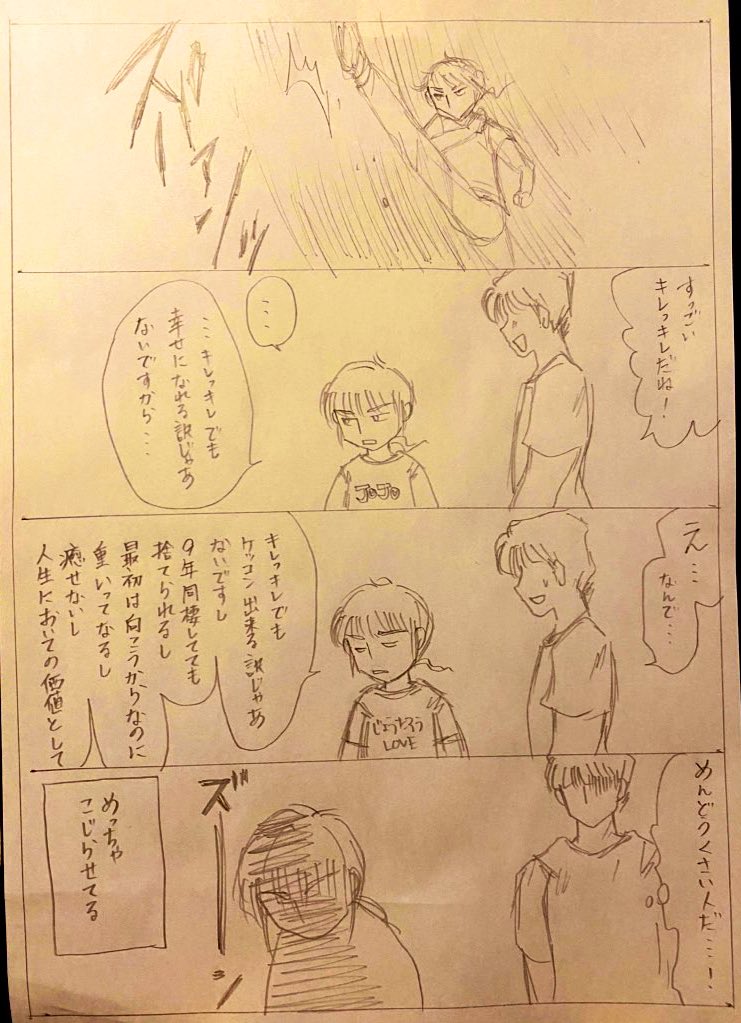 ズバァン
すっごい
キレっキレだね！
…
…キレっキレでも
幸せになれる訳じゃあ
ないですから…
JOJO
え…
なんで…
キレっキレでも
ケッコン出来る訳じゃあ
ないですし
9年同棲してても
捨てられるし
最初は向こうからなのに
重いってなるし
癒せないし
人生においての価値として
じょうたろう
LOVE
めんどうくさい人だ…！
ズーン
めっちゃ
こじらせてる